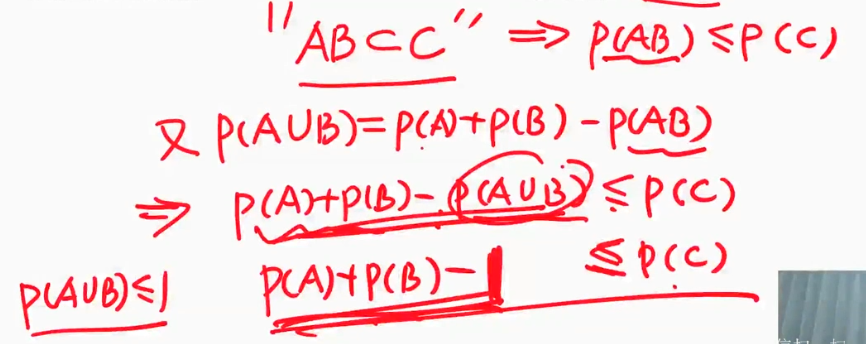 "AB⊂C" ⇒ P(AB) ≤ P(C)
又 P(A∪B)=P(A)+P(B)-P(AB)
⇒ P(A)+P(B)-P(A∪B) ≤ P(C)
P(A∪B)≤1 P(A)+P(B)-1 ≤ P(C)